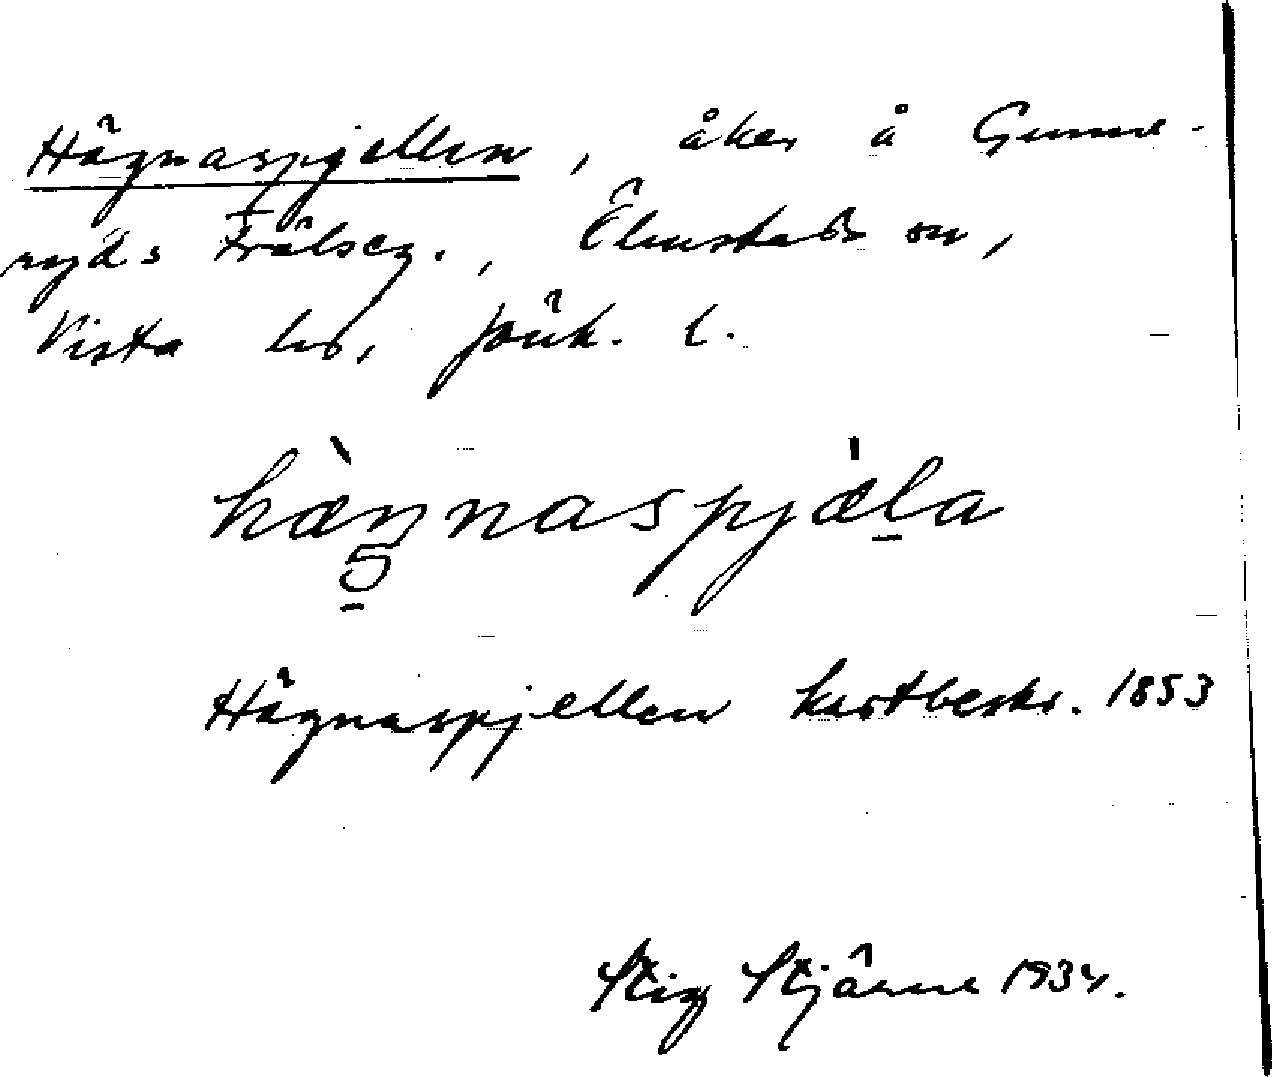 Hägnaspjellen, åker å Gunne-
ryds Frälseg., Ölmstads sn,
Vista hd, Jönk. l.
hæ̀ŋnaspjæ̍la
Hägnaspjellen kartbeskr. 1853
Stig Stjärne 1934.